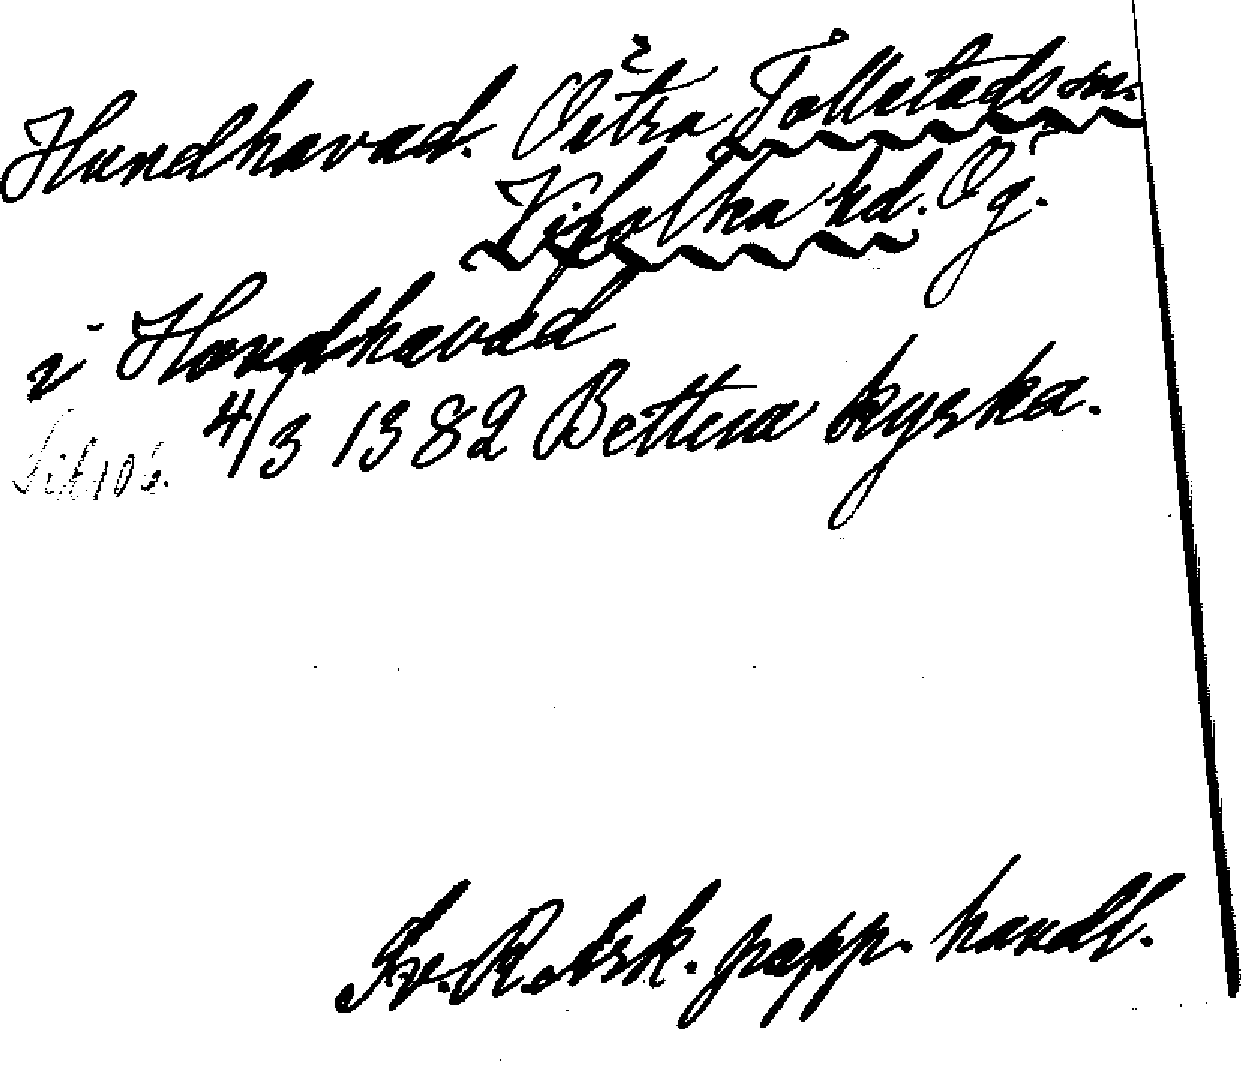 Hundhavad. Östra Tollstads sn.
Vifolka hd. Ög.
i Hondhavad
4/3 1382 Bettna kyrka.
Sv. R. Ark. papp. handl.